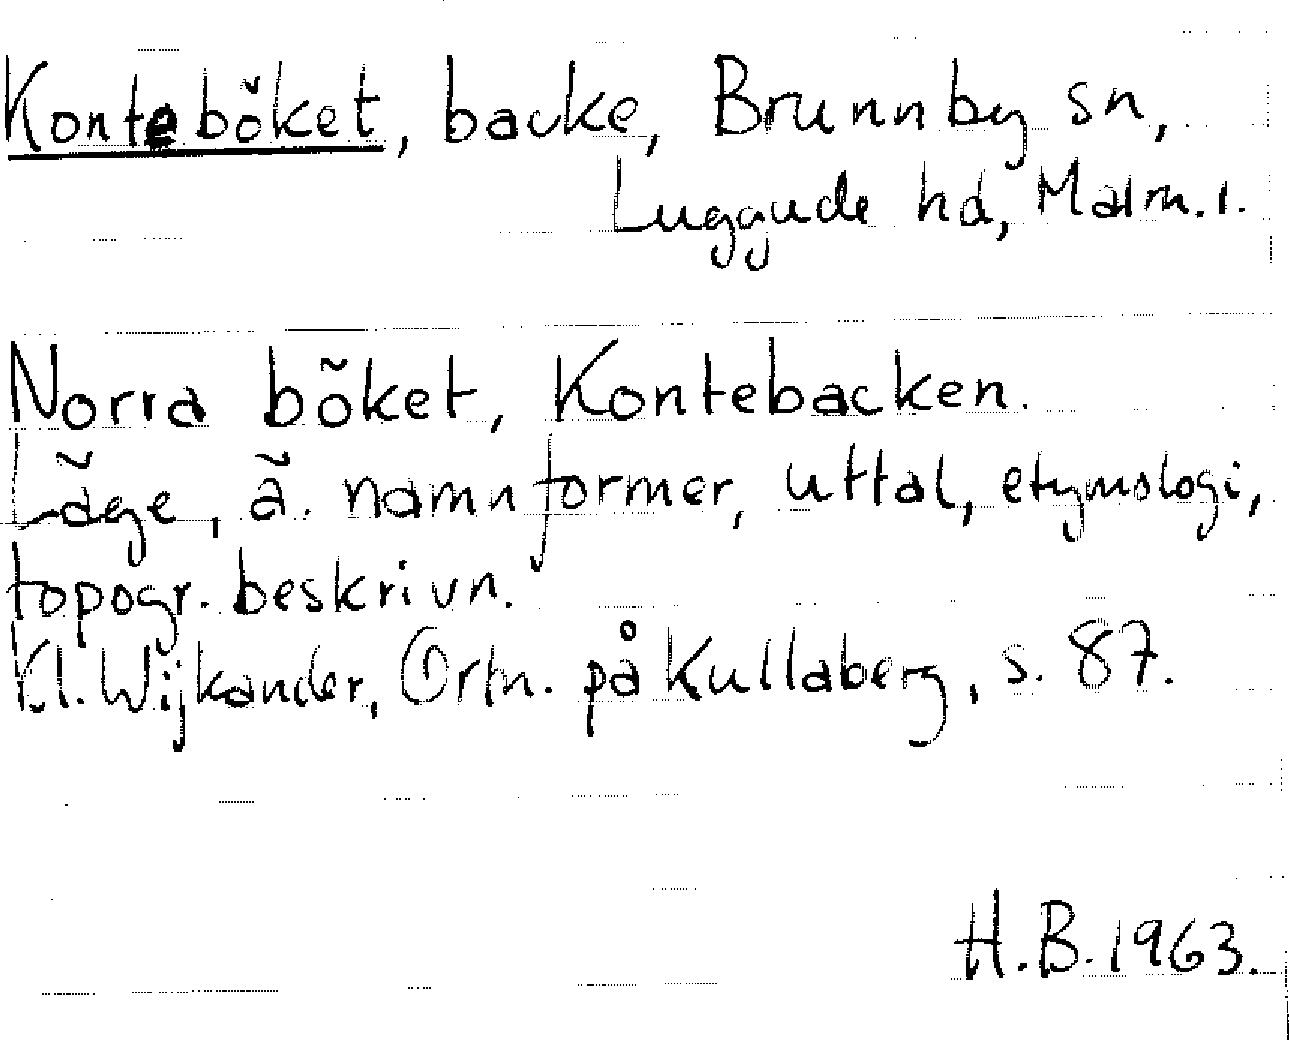 Konteböket, backe, Brunnby sn,
Luggude hd, Malm. l.
Norra böket, Kontebacken.
Läge, ä. namnformer, uttal, etymologi,
topogr. beskrivn.
Kl. Wijkander, Ortn. på Kullaberg, s. 87.
H.B. 1963.